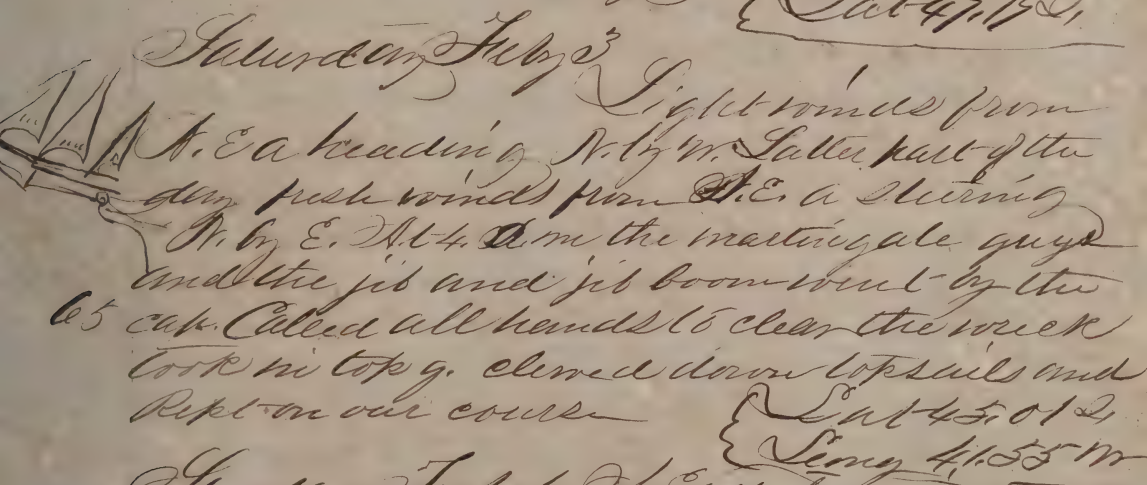 Lat 47.17 S,
Saturday Feby 3
Light winds from
N. E a heading N. by W. Latter part of the
day fresh winds from N.E. a steering
N. by E. At 4. A m the martingale guys
and the jib and jib boom went by the
65 cap. Called all hands to clear the wreck
took in top g. clewed down topsails and
Kept on our course
Lat 45.01 S
Long 41.55 W